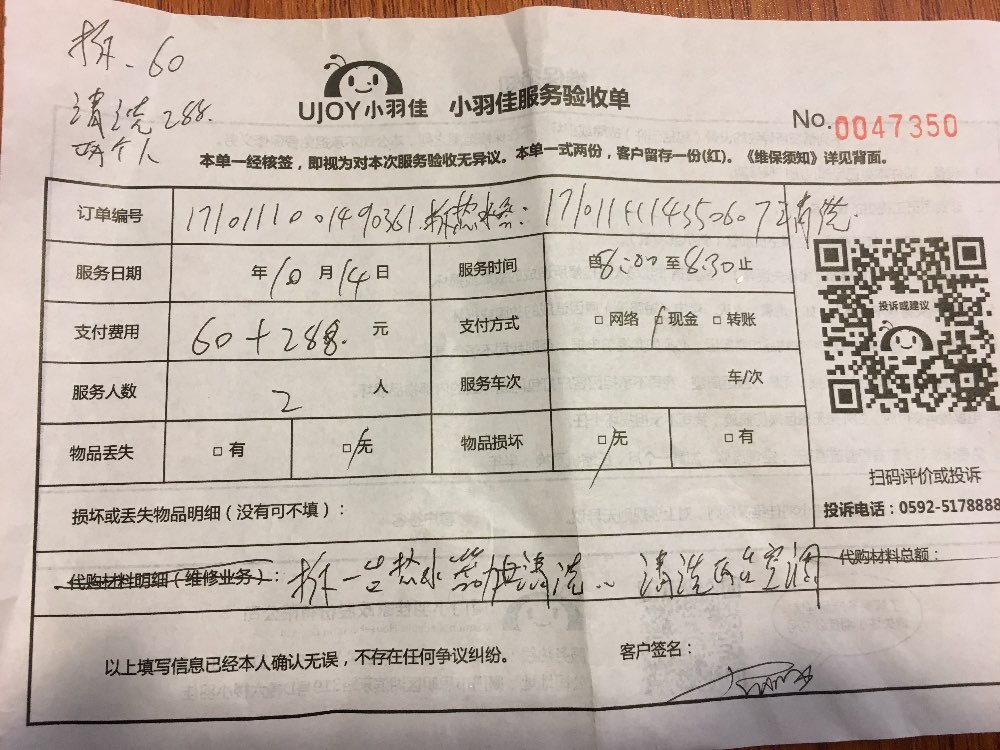 拆-60
清洗288.
两个人
UJOY小羽佳 小羽佳服务验收单
No.0047350
本单一经核签，即视为对本次服务验收无异议。本单一式两份，客户留存一份(红)。《维保须知》详见背面。
订单编号 1710111001490361.拆热水器:
服务日期 年10月14日 服务时间 8:00至8:30止
支付费用 60+288. 元 支付方式 □网络 □现金 □转账
投诉或建议
服务人数 2 人 服务车次 车/次
物品丢失 □有 □无 物品损坏 □无 □有
扫码评价或投诉
损坏或丢失物品明细（没有可不填）： 投诉电话：0592-5178888
代购材料明细（维修业务）： 拆一台热水器加清洗.. 清洗两台空调 代购材料总额：
以上填写信息已经本人确认无误，不存在任何争议纠纷。 客户签名：